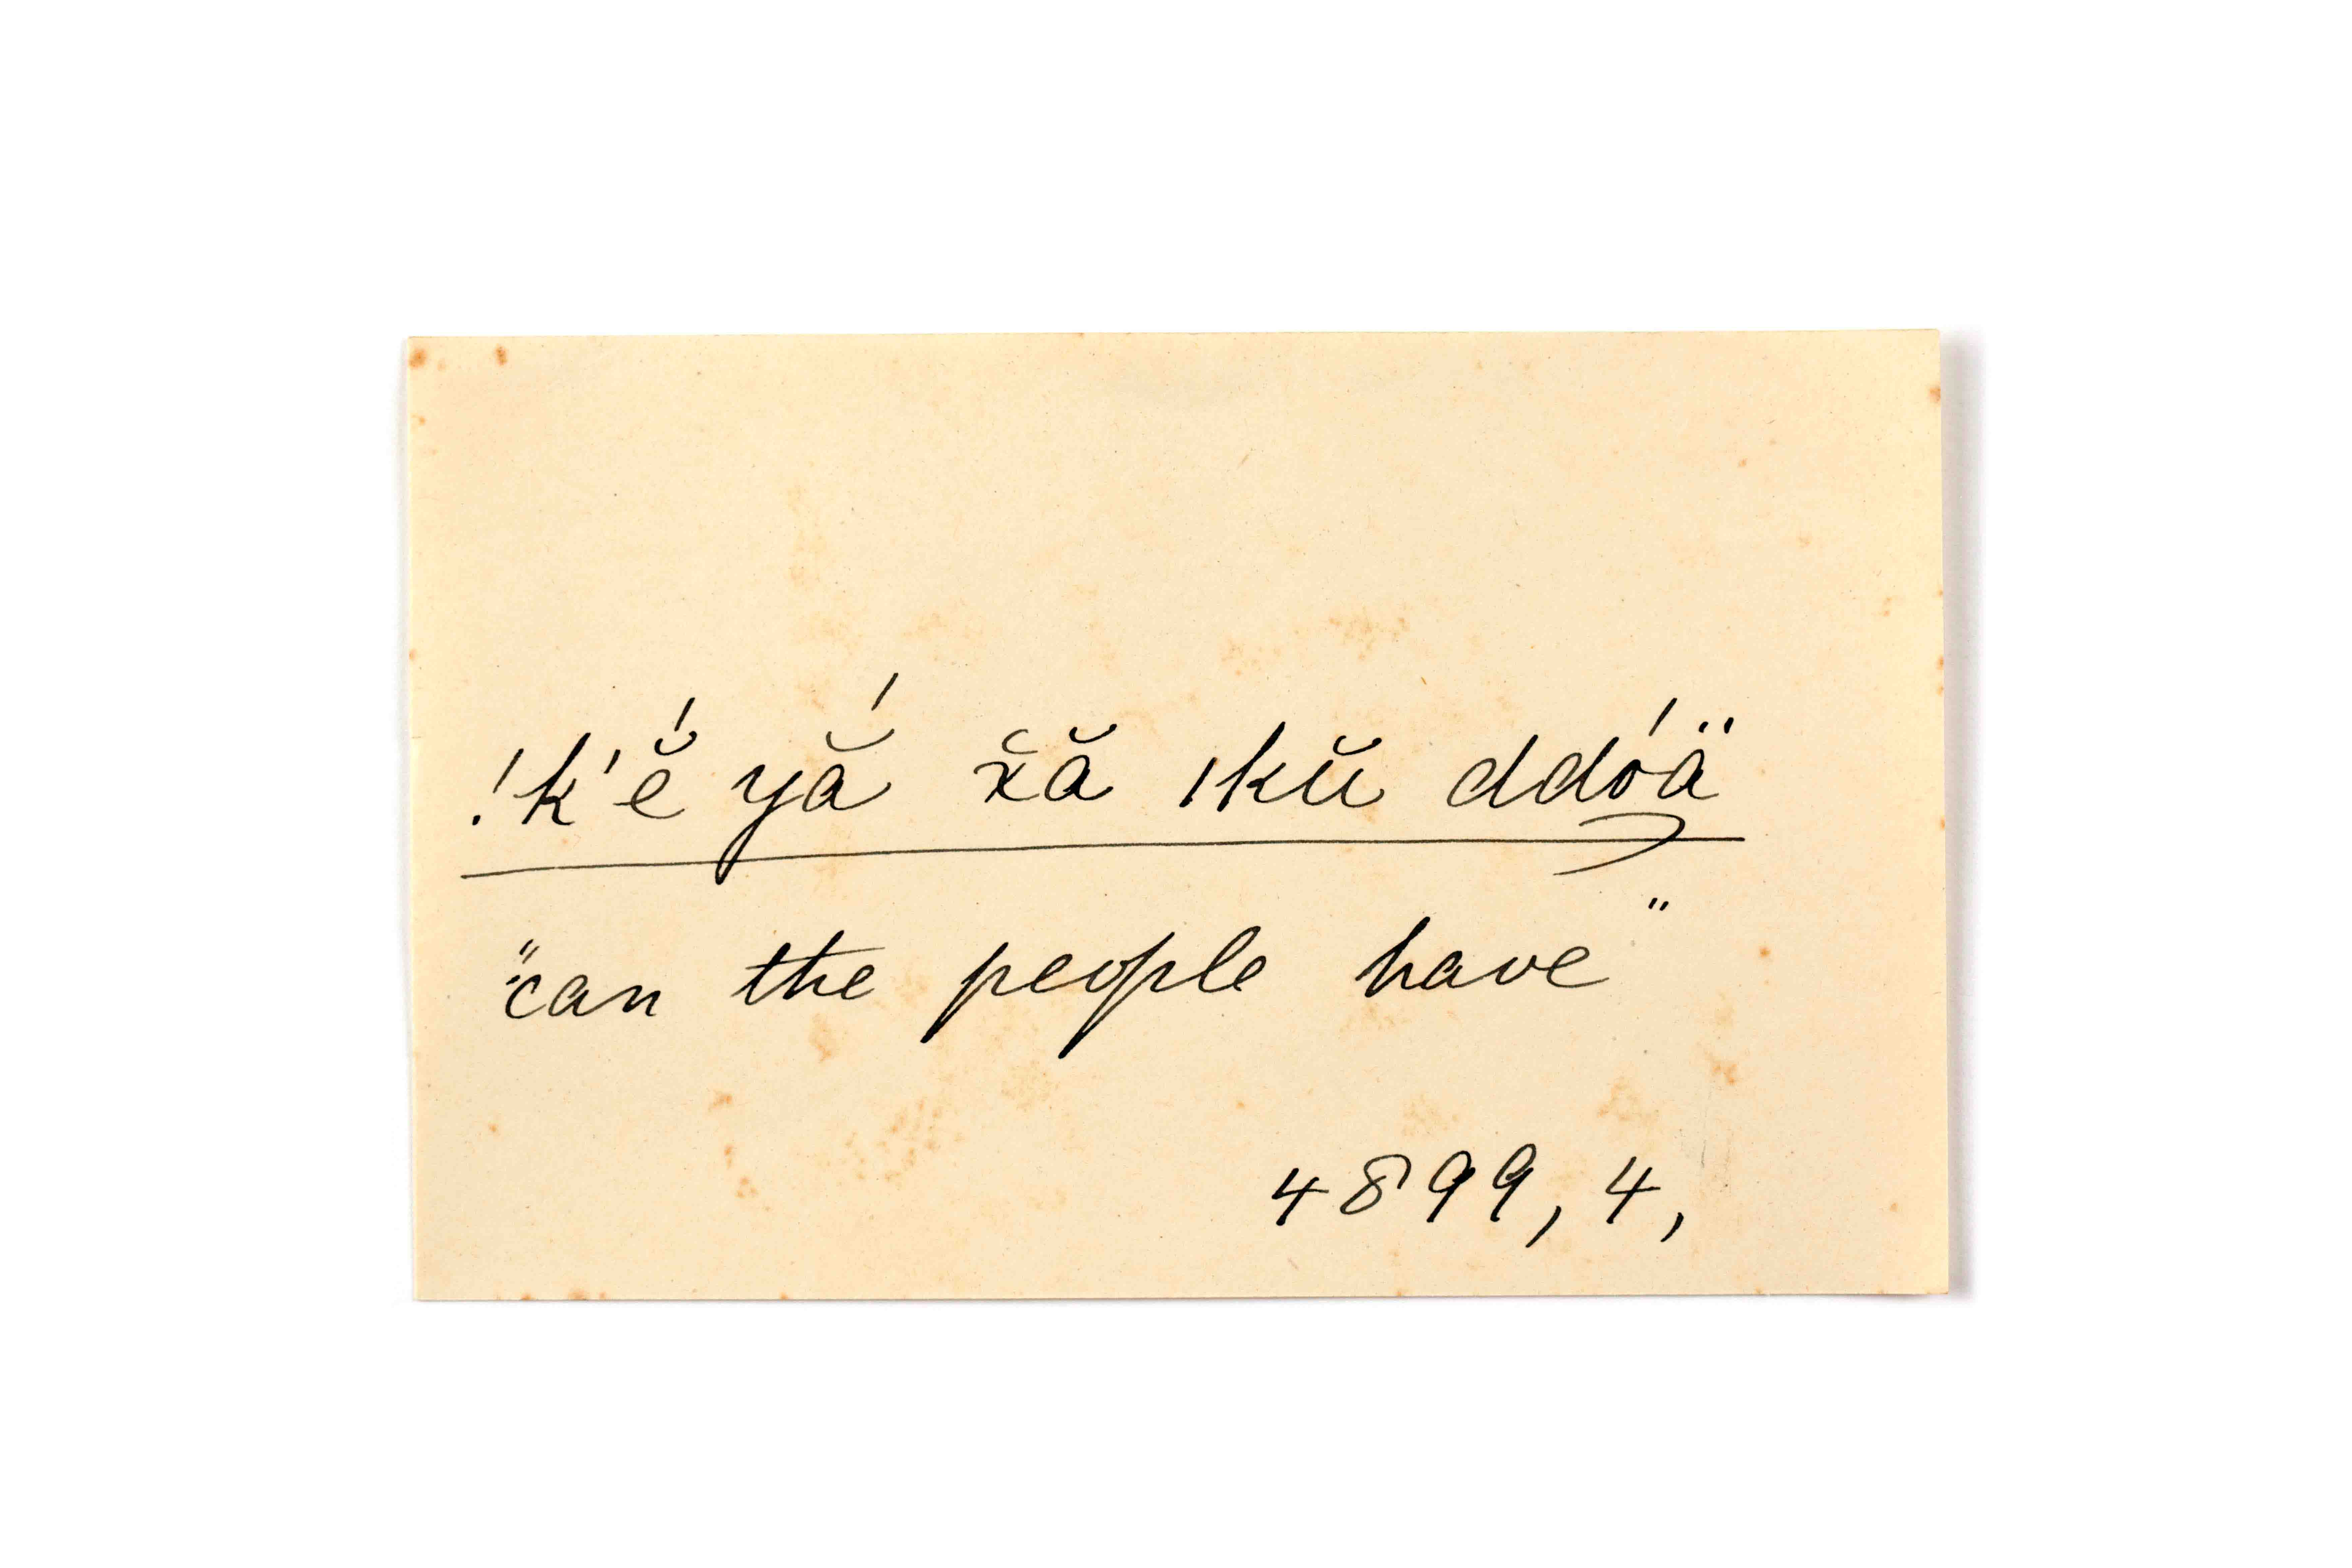 !k'ĕ́ yắ x̆ă ıkŭ ddóä
"can the people have"
4899, 4,